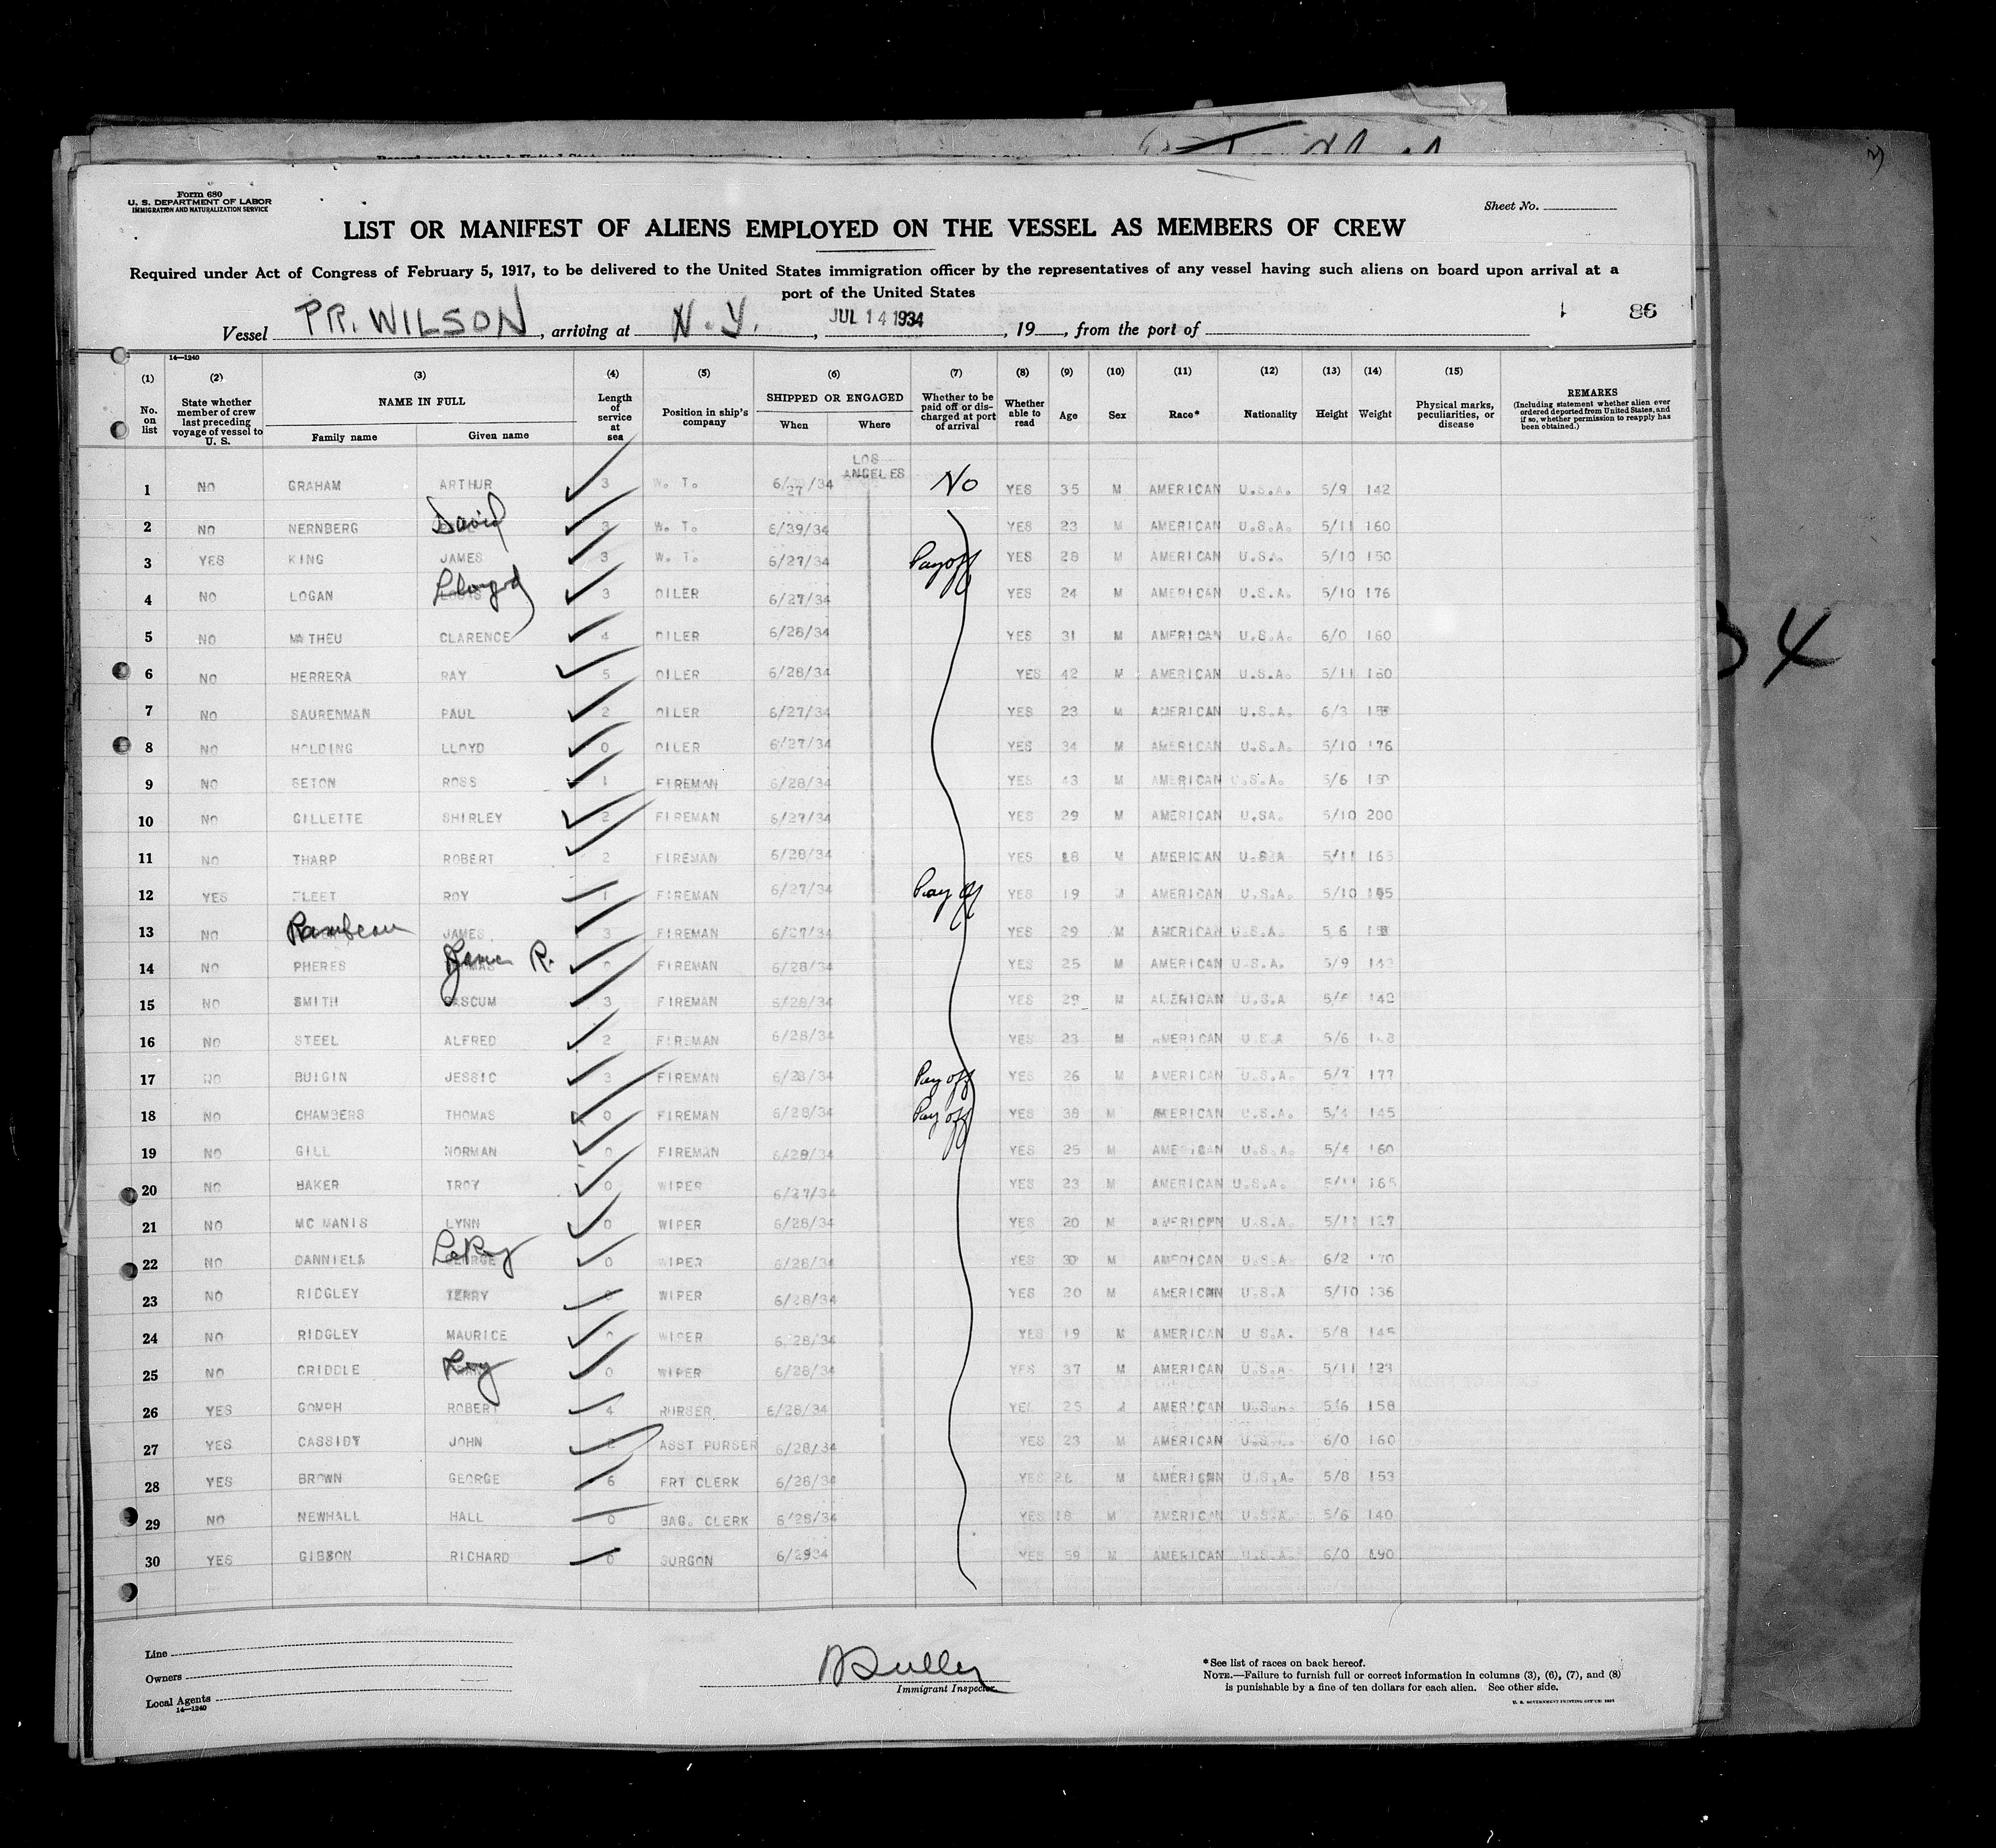 Form 680
U. S. DEPARTMENT OF LABOR
IMMIGRATION AND NATURALIZATION SERVICE
Sheet No.
LIST OR MANIFEST OF ALIENS EMPLOYED ON THE VESSEL AS MEMBERS OF CREW
Required under Act of Congress of February 5, 1917, to be delivered to the United States immigration officer by the representatives of any vessel having such aliens on board upon arrival at a
port of the United States
Vessel PR. WILSON, arriving at N. Y., JUL 14 1934, 19, from the port of
86
14—1240
(1) (2) (3) (4) (5) (6) (7) (8) (9) (10) (11) (12) (13) (14) (15)
No. on list
State whether member of crew last preceding voyage of vessel to U. S.
NAME IN FULL
Family name Given name
Length of service at sea
Position in ship's company
SHIPPED OR ENGAGED
When Where
Whether to be paid off or discharged at port of arrival
Whether able to read
Age
Sex
Race*
Nationality
Height
Weight
Physical marks, peculiarities, or disease
REMARKS
(Including statement whether alien ever ordered deported from United States, and if so, whether permission to reapply has been obtained.)
LOS
ANGELES
1 NO GRAHAM ARTHUR 3 W. T. 6/27/34 No YES 35 M AMERICAN U.S.A. 5/9 142
2 NO NERNBERG David 3 W. T. 6/39/34 YES 23 M AMERICAN U.S.A. 5/11 160
3 YES KING JAMES 3 W. T. 6/27/34 Payoff YES 28 M AMERICAN U.S.A. 5/10 150
4 NO LOGAN Lloyd 3 OILER 6/27/34 YES 24 M AMERICAN U.S.A. 5/10 176
5 NO MATHEU CLARENCE 4 OILER 6/28/34 YES 31 M AMERICAN U.S.A. 6/0 160
6 NO HERRERA RAY 5 OILER 6/28/34 YES 42 M AMERICAN U.S.A. 5/11 160
7 NO SAURENMAN PAUL 2 OILER 6/27/34 YES 23 M AMERICAN U.S.A. 6/3
8 NO HOLDING LLOYD 0 OILER 6/27/34 YES 34 M AMERICAN U.S.A. 5/10 176
9 NO SETON ROSS 1 FIREMAN 6/28/34 YES 43 M AMERICAN U.S.A. 5/6
10 NO GILLETTE SHIRLEY 2 FIREMAN 6/27/34 YES 29 M AMERICAN U.SA. 5/10 200
11 NO THARP ROBERT 2 FIREMAN 6/28/34 YES 28 M AMERICAN U.S.A 5/11 165
12 YES FLEET ROY 1 FIREMAN 6/27/34 Pay off YES 19 M AMERICAN U.S.A. 5/10
13 NO Rambeau JAMES 3 FIREMAN 6/27/34 YES 29 M AMERICAN U.S.A. 5 6
14 NO PHERES James R. 0 FIREMAN 6/28/34 YES 25 M AMERICAN U.S.A. 5/9
15 NO SMITH GASCUM 3 FIREMAN 6/28/34 YES 29 M AMERICAN U.S.A 142
16 NO STEEL ALFRED 2 FIREMAN 6/28/34 YES 23 M AMERICAN U.S.A 5/6
17 NO BUIGIN JESSIC 3 FIREMAN 6/28/34 Pay off YES 26 M AMERICAN U.S.A. 5/7 177
18 NO CHAMBERS THOMAS 0 FIREMAN 6/28/34 Pay off YES 38 M AMERICAN U.S.A. 5/4 145
19 NO GILL NORMAN 0 FIREMAN 6/28/34 YES 25 M AMERICAN U.S.A. 5/4 160
20 NO BAKER TROY 0 WIPER 6/27/34 YES 23 M AMERICAN U.S.A. 5/11 165
21 NO MC MANIS LYNN 0 WIPER 6/28/34 YES 20 M AMERICAN U.S.A. 5/11 127
22 NO DANNIELS LeRoy 0 WIPER 6/28/34 YES 30 M AMERICAN U.S.A 6/2 170
23 NO RIDGLEY TERRY WIPER 6/28/34 YES 20 M AMERICAN U.S.A 5/10 136
24 NO RIDGLEY MAURICE 0 WIPER 6/28/34 YES 19 M AMERICAN U S.A. 5/8 145
25 NO CRIDDLE Roy 0 WIPER 6/28/34 YES 37 M AMERICAN U.S.A 5/11 123
26 YES GOMPH ROBERT 4 PURSER 6/28/34 YES 25 M AMERICAN U.S.A. 5/6 158
27 YES CASSIDY JOHN ASST PURSER 6/28/34 YES 23 M AMERICAN U.S. 6/0 160
28 YES BROWN GEORGE 6 FRT CLERK 6/28/34 YES M AMERICAN U.S.A. 5/8 153
29 NO NEWHALL HALL 0 BAG. CLERK 6/28/34 YES 18 M AMERICAN U.S.A. 5/6 140
30 YES GIBSON RICHARD 0 SURGON 6/2934 YES 59 M AMERICAN U.S.A. 6/0 190
Line
Owners
Local Agents
14—1240
Immigrant Inspector.
*See list of races on back hereof.
NOTE.—Failure to furnish full or correct information in columns (3), (6), (7), and (8)
is punishable by a fine of ten dollars for each alien. See other side.
34